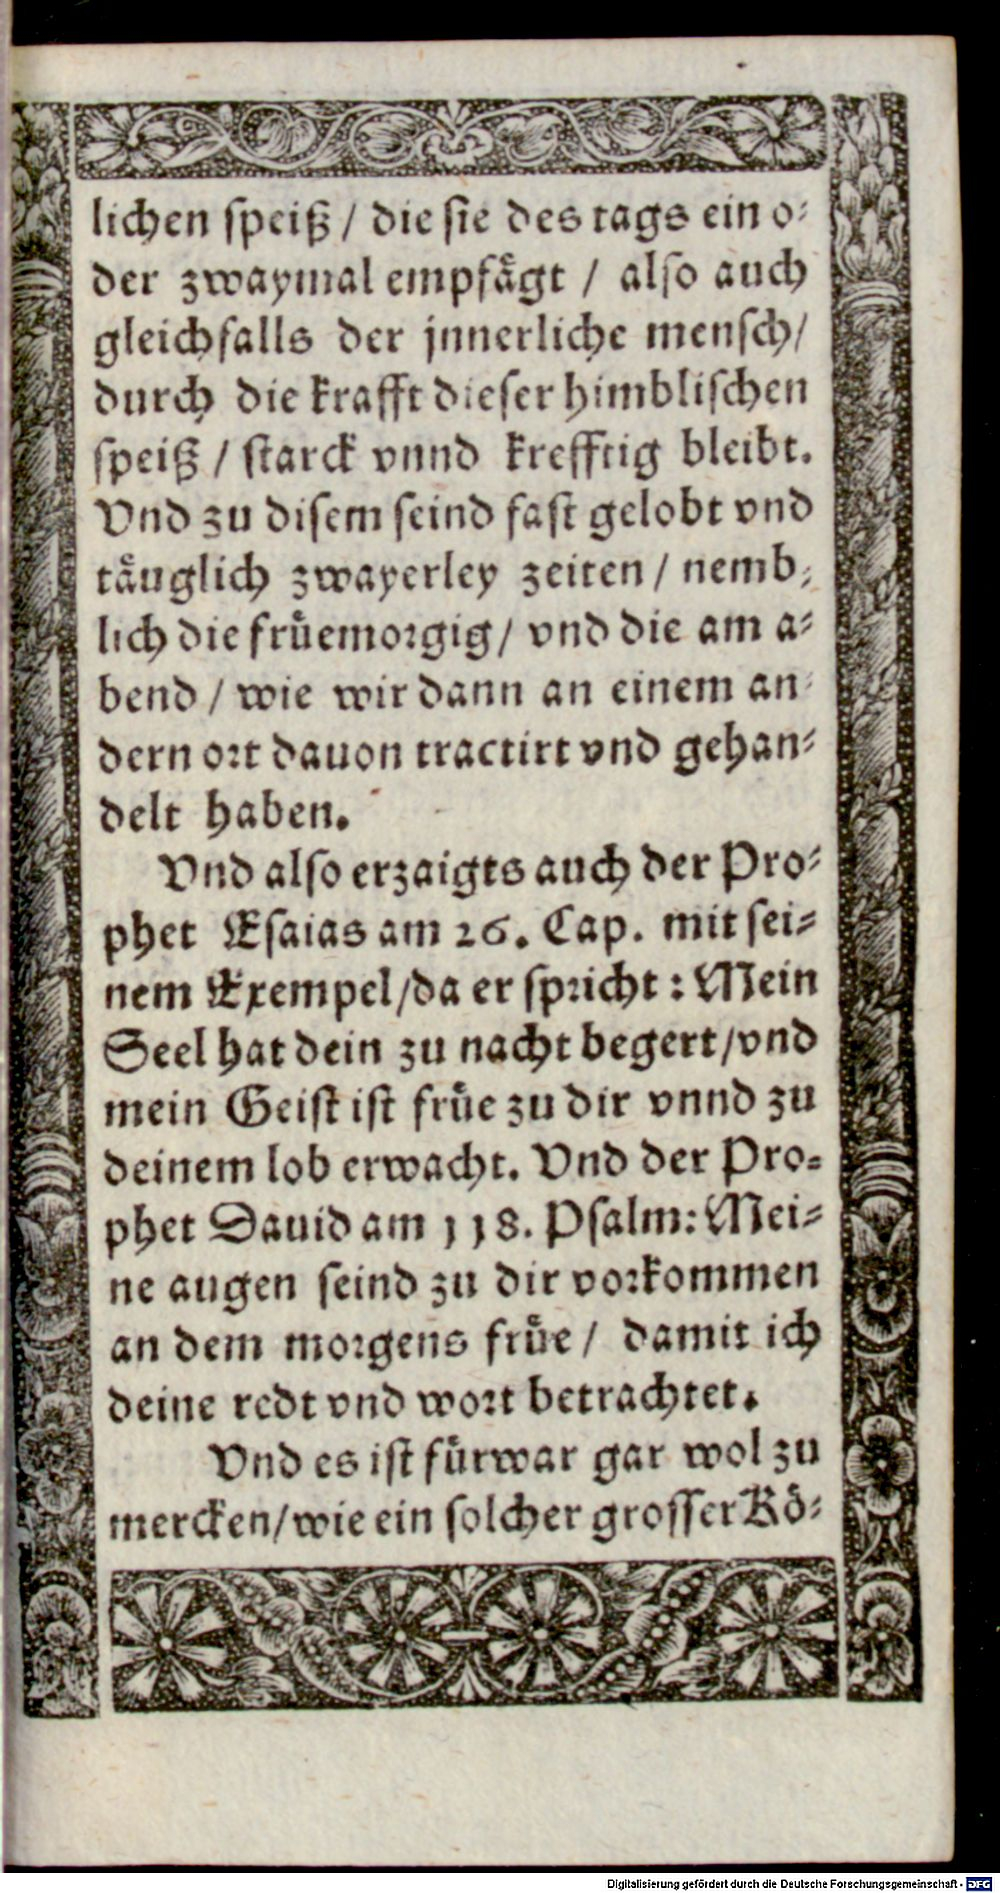 lichen speiß / die sie des tags ein o⸗
der zwaymal empfa̋gt / also auch
gleichfalls der jnnerliche mensch/
durch die krafft dieser himblischen
speiß / starck vnnd krefftig bleibt.
Vnd zu disem seind fast gelobt vnd
täuglich zwayerley zeiten / nemb⸗
lich die früemorgig/ vnd die am a⸗
bend / wie wir dann an einem an⸗
dern ort dauon tractirt vnd gehan⸗
delt haben.
Vnd also erzaigts auch der Pro⸗
phet Esaias am 26. Cap. mit sei⸗
nem Exempel/da er spricht: Mein
Seel hat dein zu nacht begert/vnd
mein Geist ist früe zu dir vnnd zu
deinem lob erwacht. Vnd der Pro⸗
phet Dauid am 118. Psalm: Mei⸗
ne augen seind zu dir vorkommen
an dem morgens früe / damit ich
deine redt vnd wort betrachtet.
Vnd es ist fürwar gar wol zu
mercken/wie ein solcher grosser Kö⸗
Digitalisierung gefördert durch die Deutsche Forschungsgemeinschaft - DFG